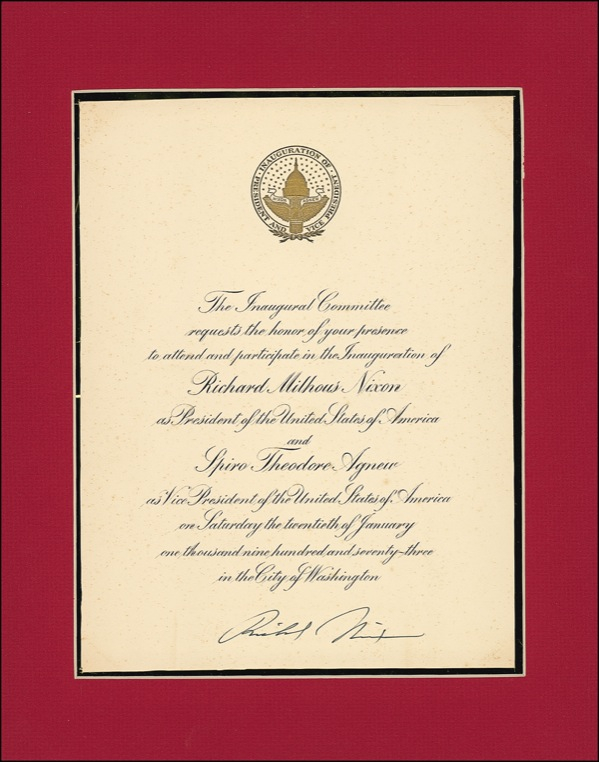 INAUGURATION OF PRESIDENT AND VICE PRESIDENT
The Inaugural Committee
requests the honor of your presence
to attend and participate in the Inauguration of
Richard Milhous Nixon
as President of the United States of America
and
Spiro Theodore Agnew
as Vice President of the United States of America
on Saturday the twentieth of January
one thousand nine hundred and seventy-three
in the City of Washington
Richard Nixon